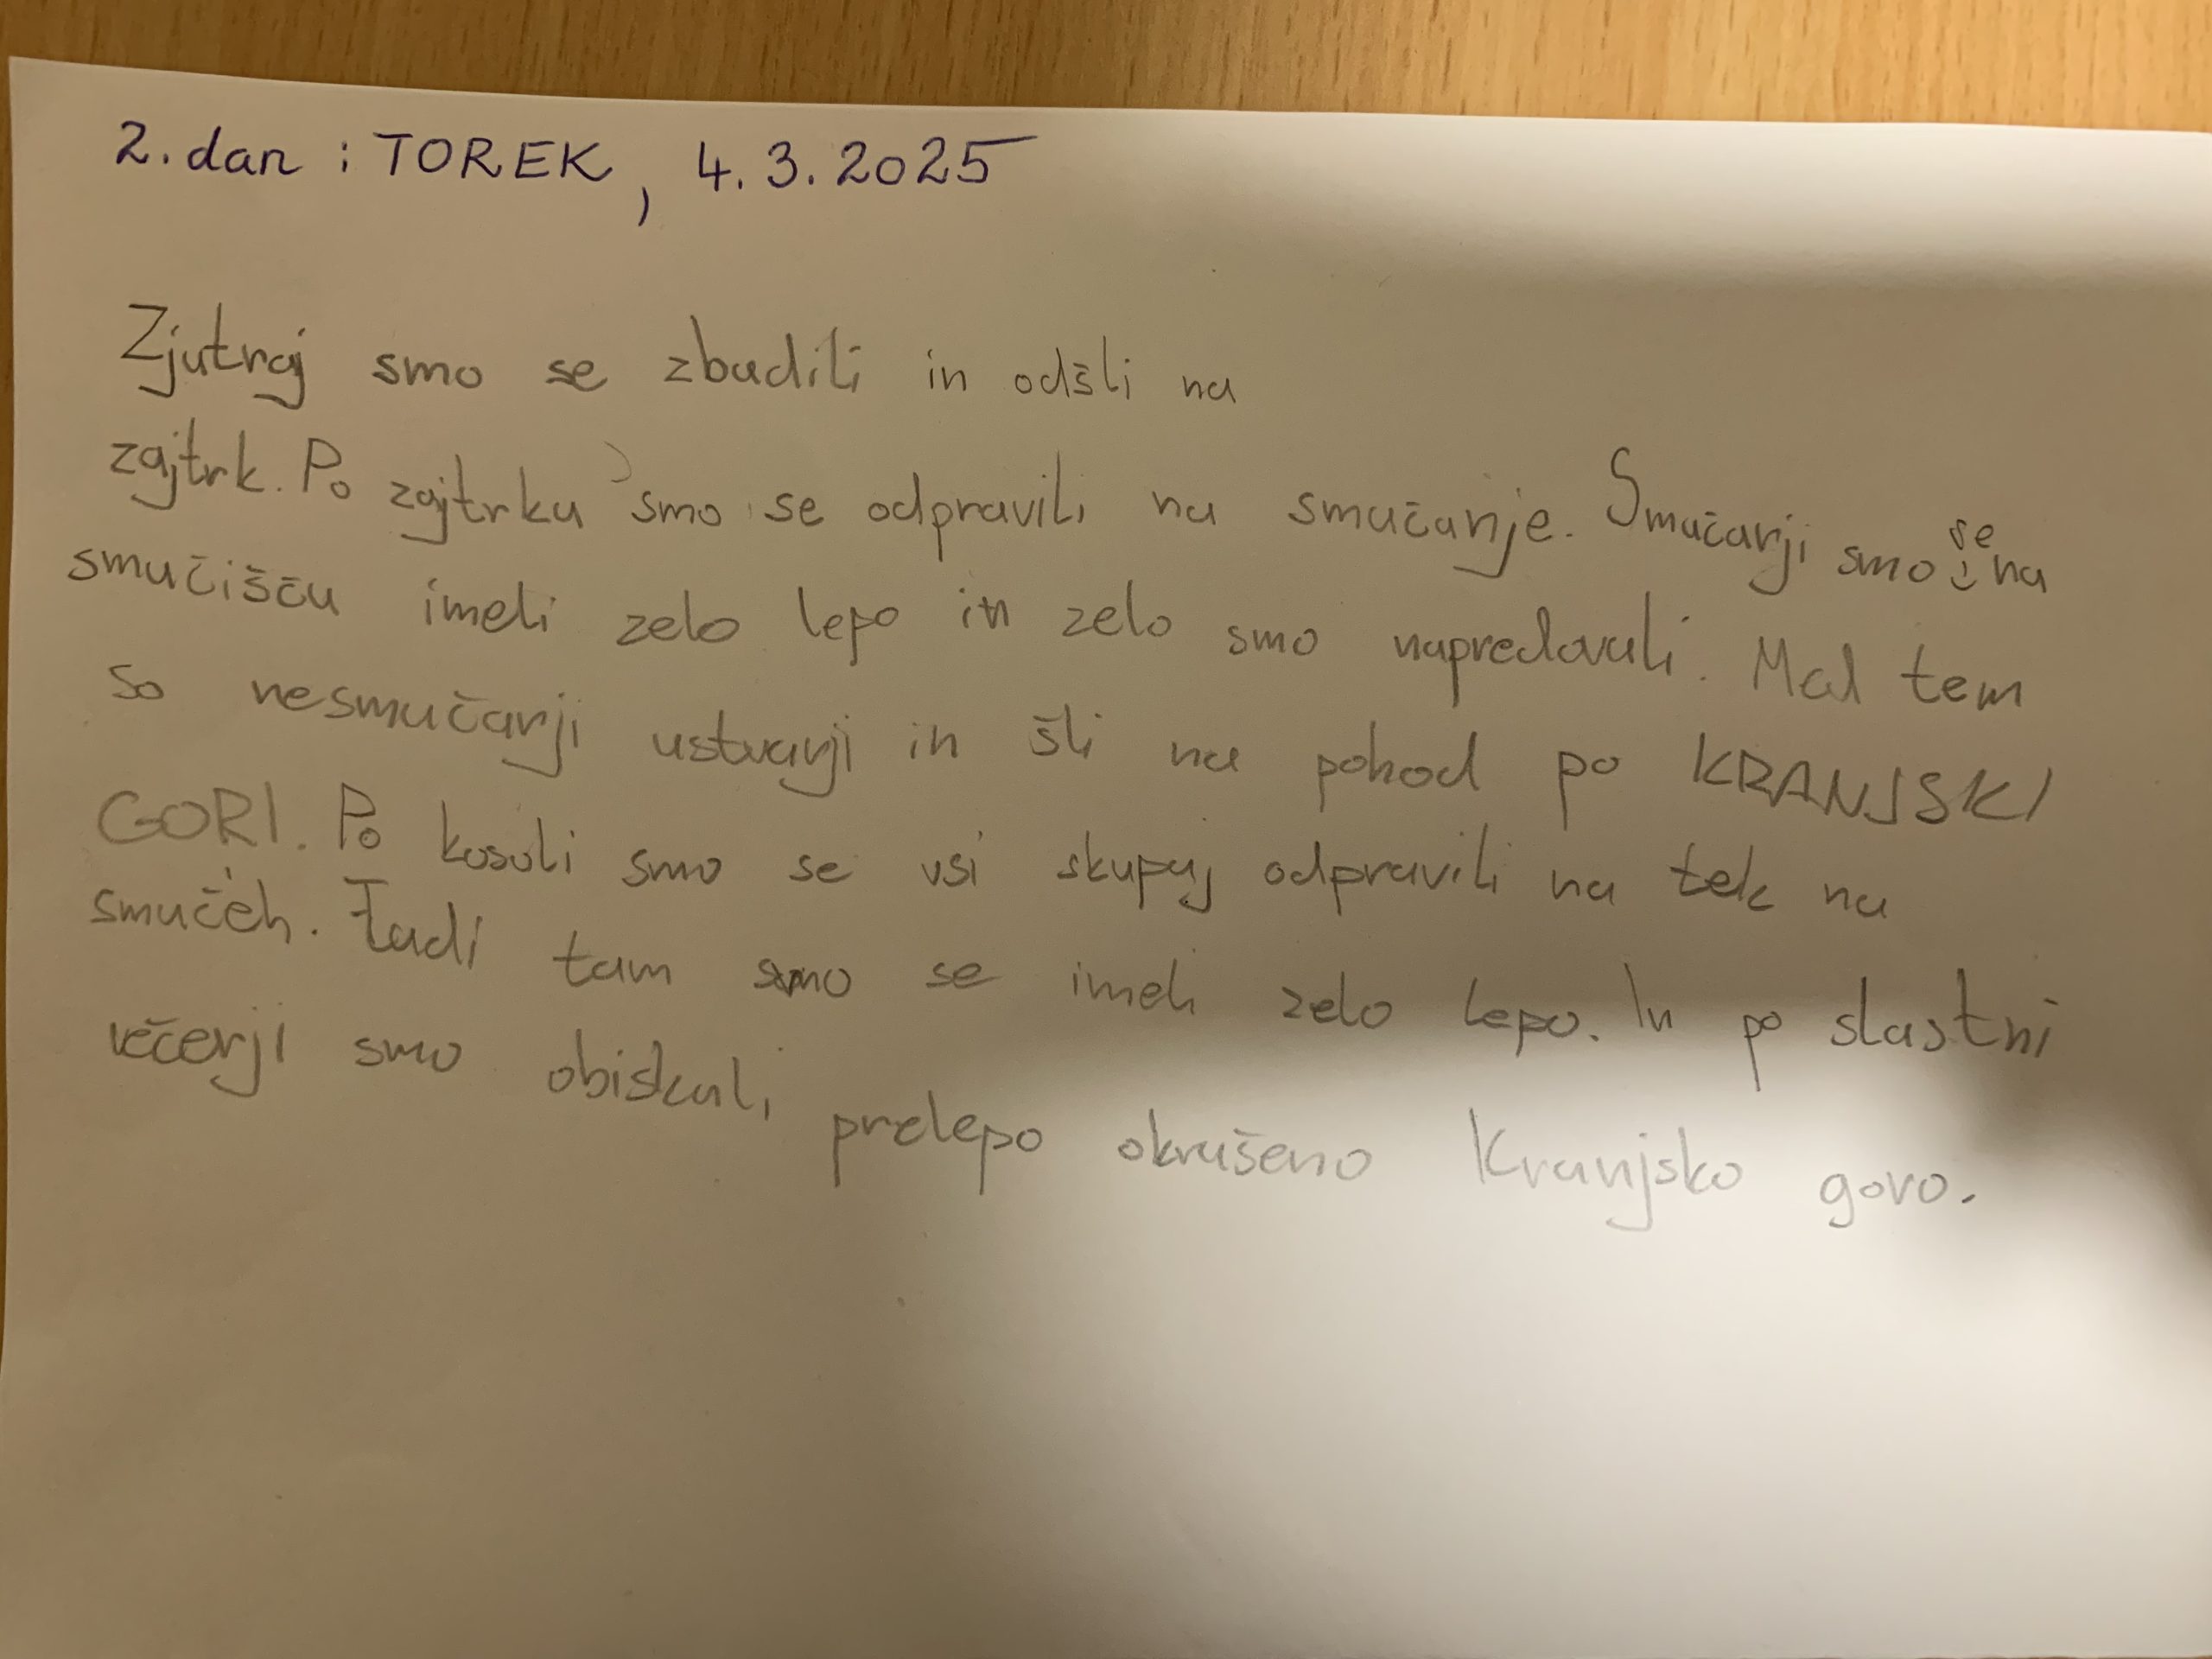 2. dan : TOREK, 4.3.2025
Zjutraj smo se zbudili in odšli na
zajtrk. Po zajtrku smo se odpravili na smučanje. Smučarji smo se na
smučišču imeli zelo lepo in zelo smo napredovali. Mad tem
so nesmučarji ustvarji in šli na pohod po KRANJSKI
GORI. Po kosoli smo se vsi skupaj odpravili na tek na
smučeh. Tudi tam smo se imeli zelo lepo. In po slastni
večerji smo obiskali prelepo okrašeno Kranjsko goro.